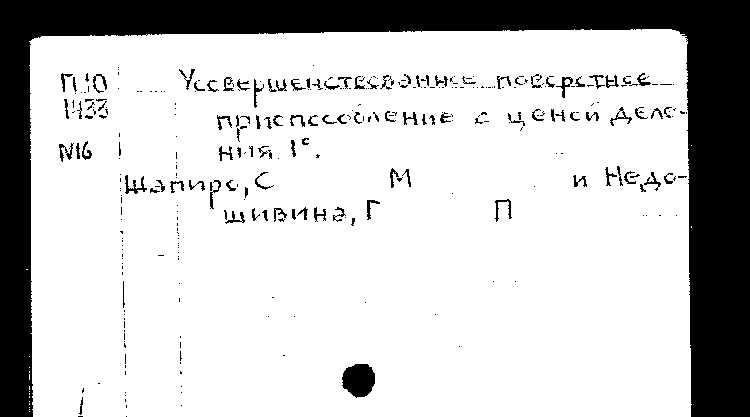 П10 Усовершенствованное поворотное
1433 приспособление с ценой деле-
N16 ния 1°.
Шапиро, С М и Недо-
шивина, Г П